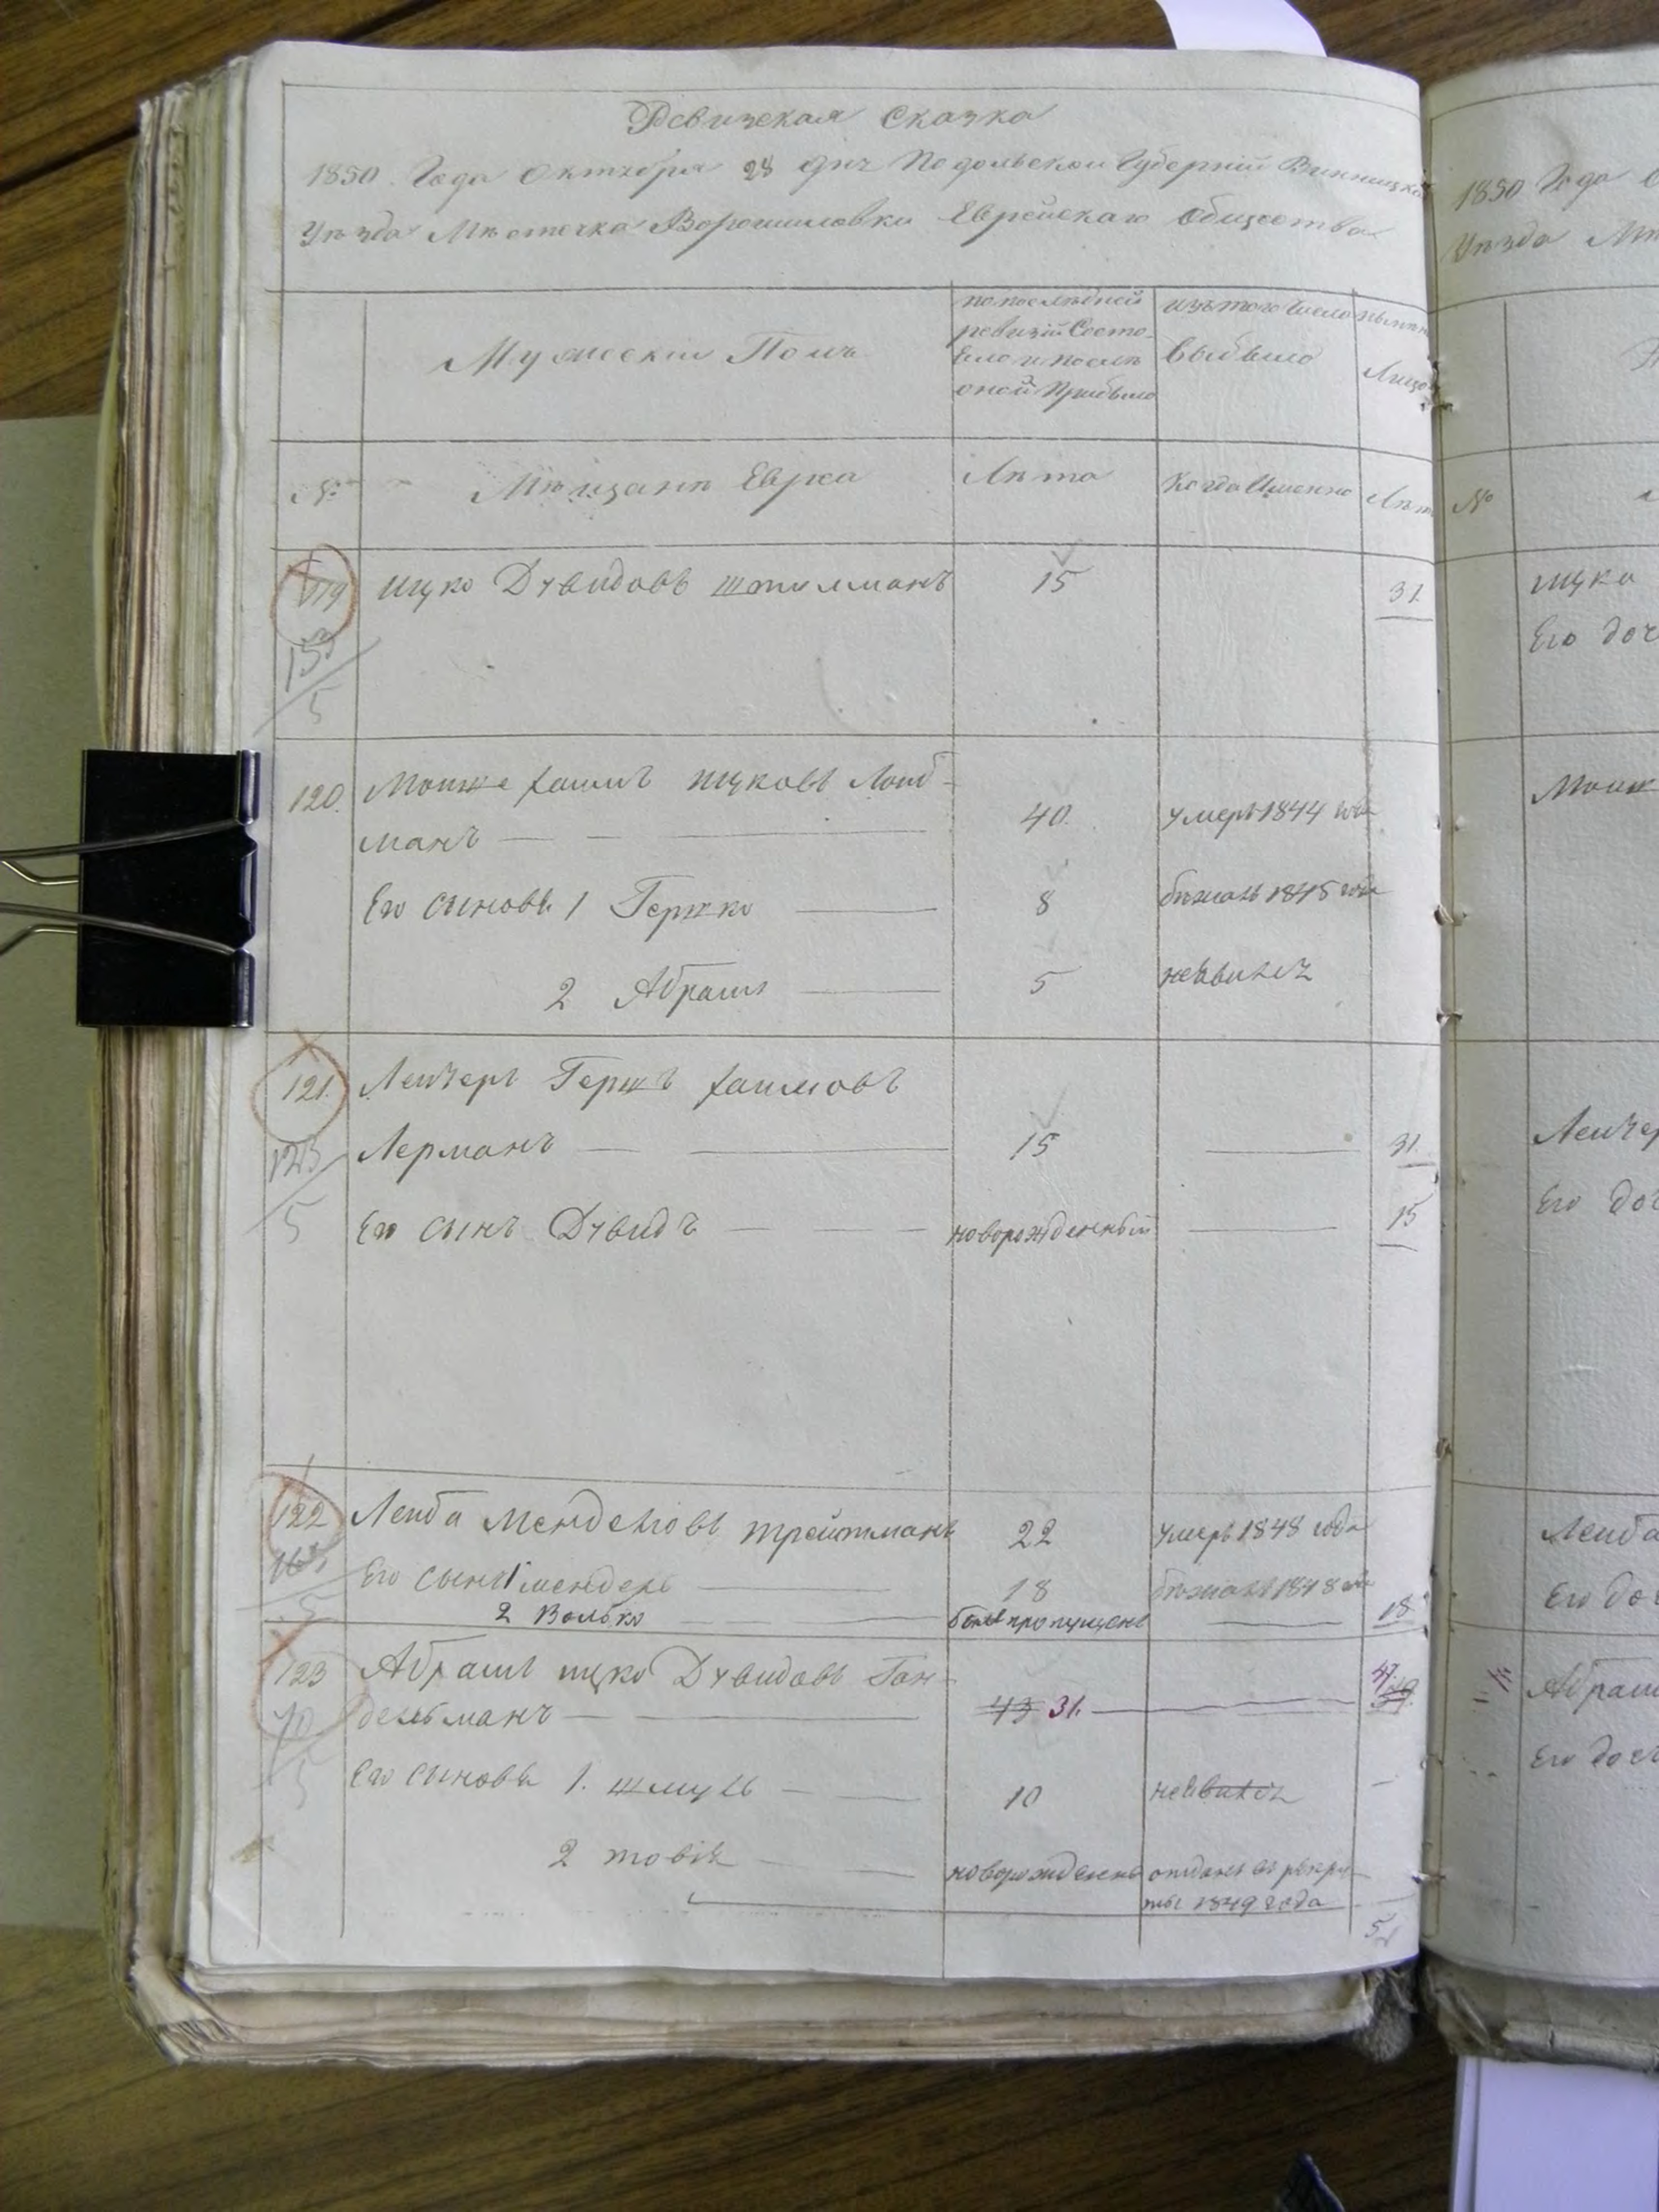 Ревизская Сказка
1850. Года Октября 28 дня Подольской Губерніи Винницка
Уѣзда Мѣстечка Ворошиловки Еврейскаго Общества
Мужескій Полъ
по послѣдней
ревизіи Состо-
яло и послѣ
оной Прибыло
изъ того Числа
Выбыло
Лицо
№
Мѣщанѣ Евреи
Лѣта
Когда Именно
Лѣт
119 Ицко Дувидовъ Штилманъ 15 31.
5
120. Мошке Хаимъ Ицковъ Лоиб-
манъ 40. умеръ 1844 года
Его сыновья 1 Гершко 8 бѣжалъ 1845 года
2 Абрамъ 5 неявился
121. Лейзеръ Гершъ Хаимовъ
Лерманъ 15 31.
123
5
Его сынъ Дувидъ новорожденный 15
122 Лейба Менделовъ Трейтманъ 22 умеръ 1848 года
Его сынъ 1 Мендель 18 бѣжалъ 1848
2 Волько былъ пропущенъ 18
5
123 Абрамъ Ицко Дувидовъ Ган-
дельманъ 43 31. 47.
Его сыновья 1. Шмуль 10 неявился
2 Товія новорожденъ отданъ въ рекру-
ты 1849 года
1850 Года О
Уѣзда Мѣ
№
Ицко
Его доч
Мошк
Лейзер
Его доч
Лейба
Его доч
Абрам
Его доч